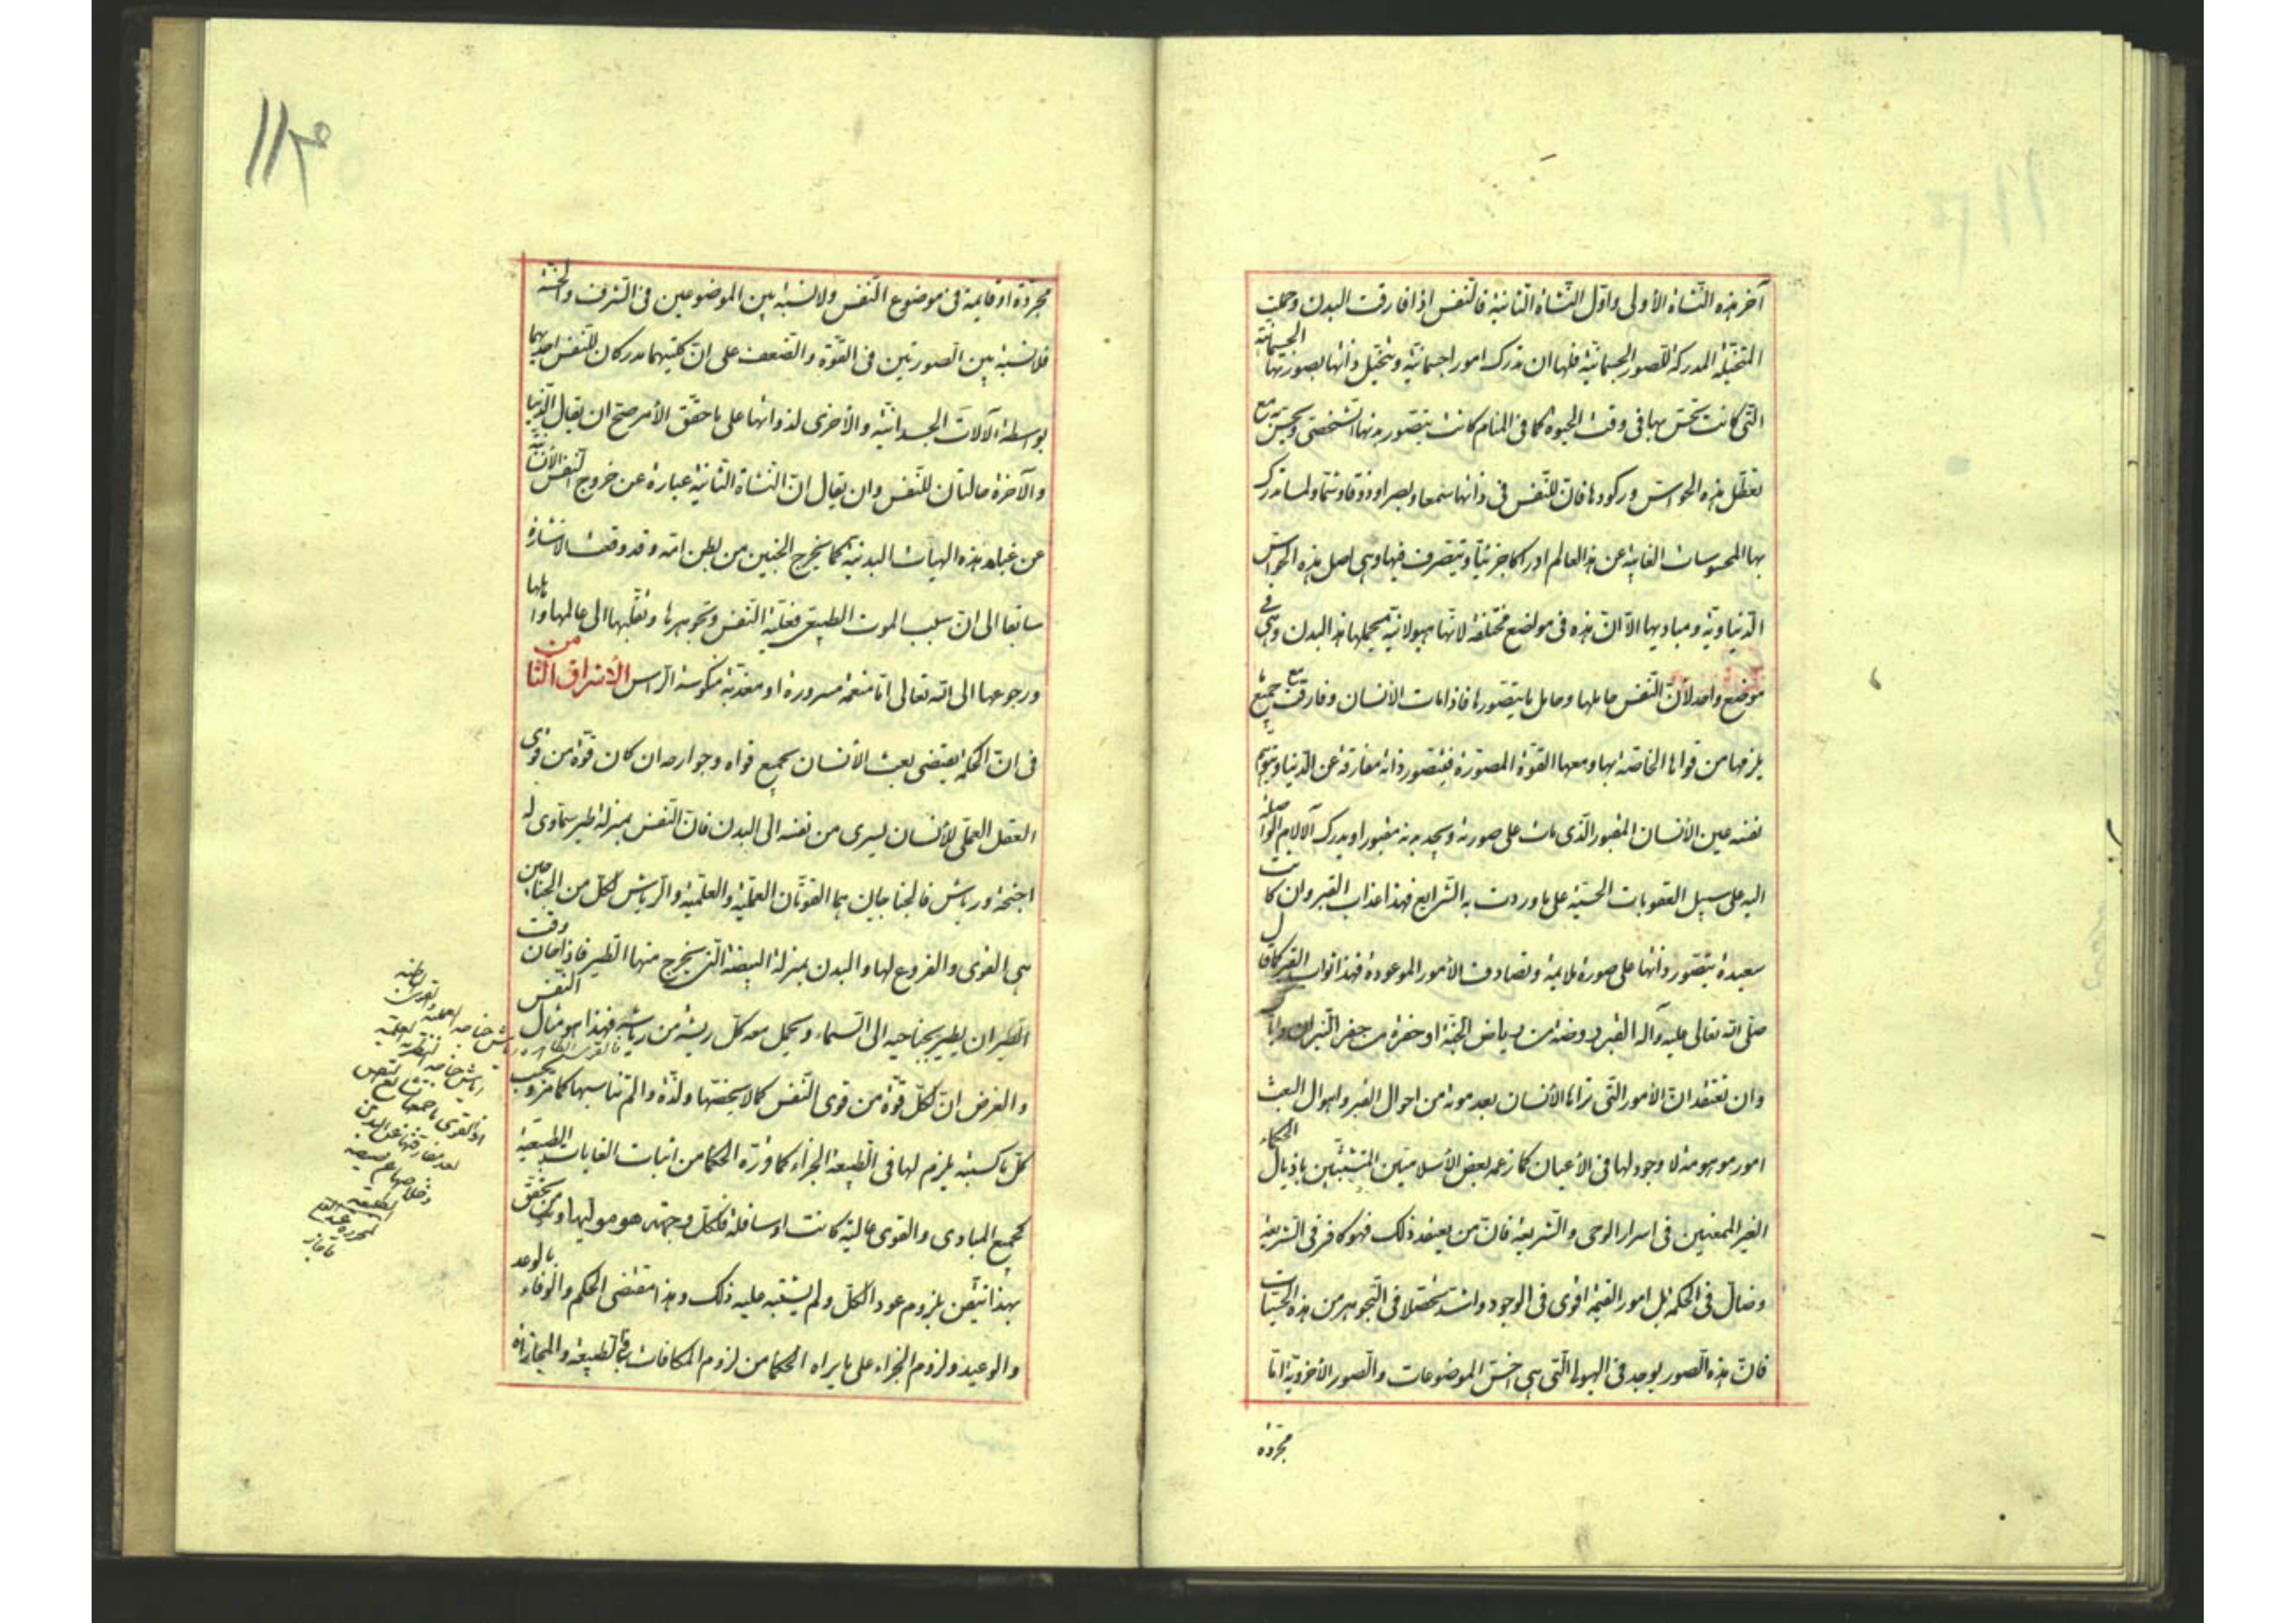 آخر هذه النشاة الأولى واوّل النشاة الثانية فالنفس اذا فارقت البدن وحملت
المتخيّلة المدركة للصور الجسمانيّة فلها ان تدرك امورا جسمانيّة ويتخيّل ذاتها بصورتها الجسمانيّة
التى كانت تحسّ بها فى وقت الحيوة كما فى المنام كانت يتصوّر بدنها الشخصى ويحسّ به مع
تعطّل هذه الحواسّ وركودها فانّ للنفس فى ذاتها سمعا وبصرا وذوقا وشمّا ولمسا تدرك
بها المحسوسات الغايبة عن هذا العالم ادراكا جزئيّا ويتصرف فيها وهى اصل هذه الحواسّ
الدنياويّة ومباديها الاّ انّ هذه فى مواضع مختلفة لانها هيولانيّة يحملها هذا البدن وهى فى
موضع واحد لأنّ النفس حاملها وحامل ما يتصورها فاذا مات الأنسان وفارقت مع جميع ما
يلزمها من قواها الخاصّة بها ومعها القوّة المصوّرة فيتصوّر ذاته مفارقة عن الدنيا ويتوهم
نفسه عين الأنسان المقبور الذى مات على صورته ويجد بدنه مقبورا ويدرك الآلام الواصلة
اليه على سبيل العقوبات الحسّيّة على ما وردت به الشرايع فهذا عذاب القبر وان كانت
سعيدة يتصوّر ذاتها على صورة ملايمة وتصادف الأمور الموعودة فهذا ثواب القبر كما قال
صلّى الله تعالى عليه وآله القبر روضة من رياض الجنّة او حفرة من حفر النيران واياك
وان تعتقد انّ الأمور التى تراها الأنسان بعد موته من احوال القبر واهوال البعث
امور موهومة لا وجود لها فى الأعيان كما زعمه بعض الأسلاميّين المتشبّثين باذيال الحكماء
الغير الممعنين فى اسرار الوحى والشريعة فانّ من يعتقد ذلك فهو كافر فى الشريعة
وضالّ فى الحكمة بل امور القيمة اقوى فى الوجود واشدّ تحصّلا فى التجوهر من هذه الحسّيات
فانّ هذه الصور يوجد فى الهيولى التى هى اخسّ الموضوعات والصور الأخرويّة امّا
مجرّدة
مجرّدة او قايمة فى موضوع النفس ولا نسبة بين الموضوعين فى الشرف والخسّة
فلا نسبة بين الصورتين فى القوّة والضعف على انّ كلتيهما مدركان للنفس احديهما
بواسطة الآلات الجسدانيّة والأخرى لذواتها على ما حقّق الأمر صحّ ان يقال الدنيا
والآخرة حالتان للنفس وان يقال انّ النشاة الثانية عبارة عن خروج النفس الأنسانيّة
عن غبار هذه الهيات البدنيّة كما يخرج الجنين من بطن امّه وقد وقعت الاشارة
سابقا الى انّ سبب الموت الطبيعى فعليّة النفس وتجوهرها ونقلها الى عالمها
ورجوعها الى الله تعالى امّا منعّمة مسرورة او معذّبة منكوسة الراس الأشراق الثامن
فى انّ الحكمة يقتضى بعث الأنسان بجميع قواه وجوارحه ان كان قوّة من قوى
العقل العملى للأنسان يسرى من نفسه الى البدن فانّ النفس بمنزلة طير سماوى له
اجنحة ورياش فالجناحان هما القوّتان العمليّة والعلميّة والرياش لكلّ من الجناحين
هى القوى والفروع لها والبدن بمنزلة البيضة التى يخرج منها الطير فاذا حان وقت
الطيران يطير بجناحيه الى السماء ويحمل معه كلّ ريشة من رياشه فهذا هو مثال النفس
والغرض انّ لكلّ قوّة من قوى النفس كمالا يخصّها ولذّة والم تناسبها كما مرّ وبحسب
كلّ ما كسبته يلزم لها فى الطبيعة الجزاء كما قرّره الحكما من اثبات الغايات الطبيعيّة
لجميع المبادى والقوى عالية كانت او سافلة فلكلّ وجهة هو مولّيها ومن تحقّق
بهذا تيقّن بلزوم عود الكلّ ولم يشتبه عليه ذلك وهذا مقتضى الحكم والوفاء بالوعد
والوعيد ولزوم الجزاء على ما يراه الحكما من لزوم المكافات فى الطبيعة والمجازاة